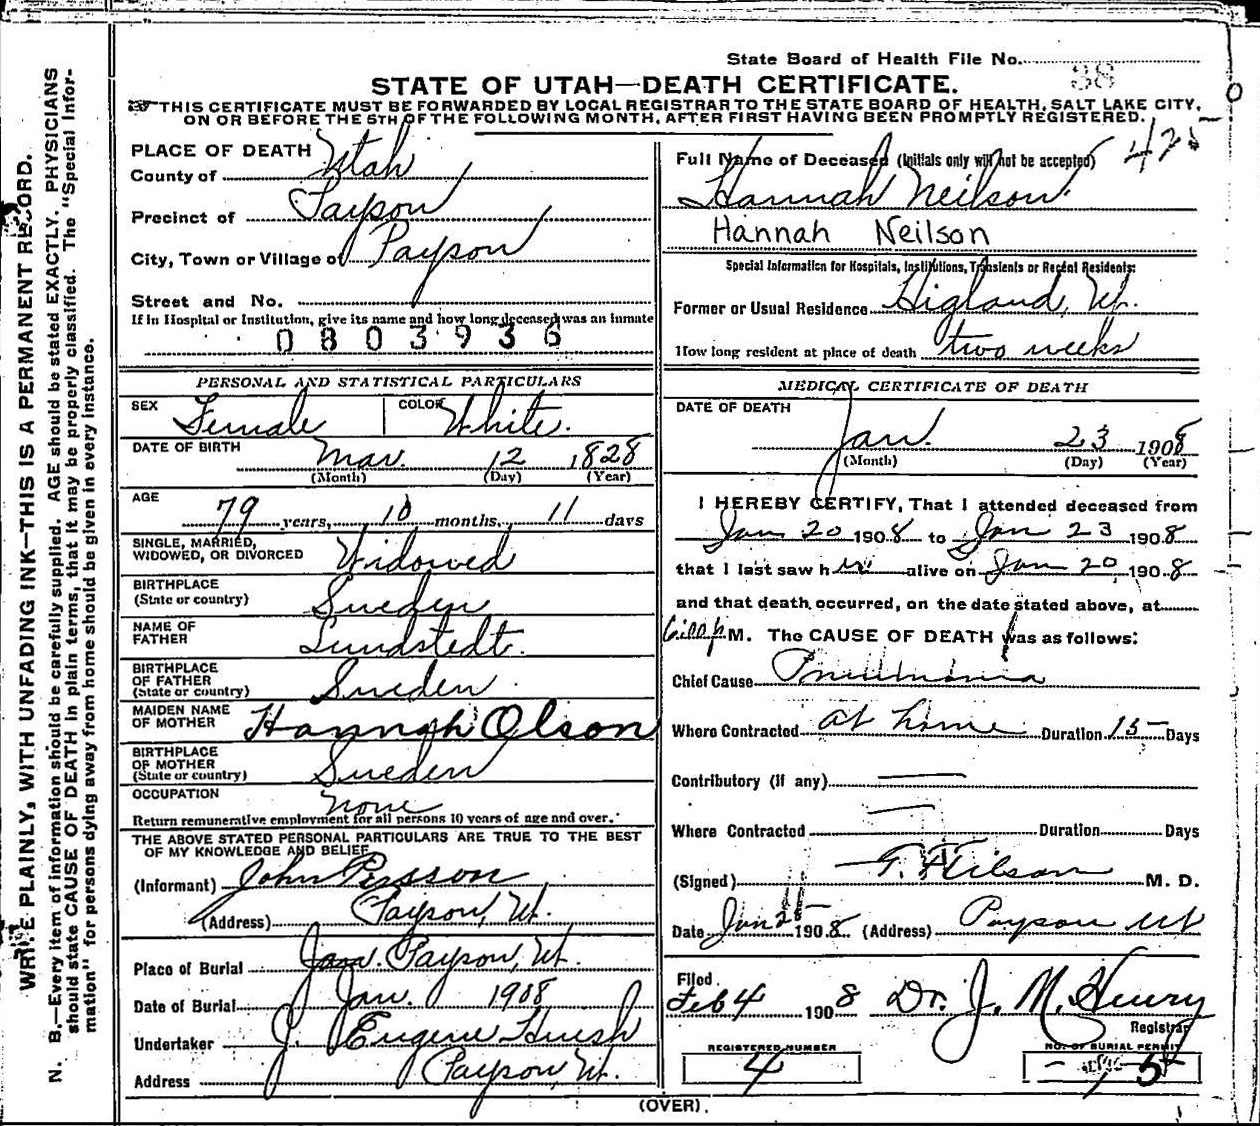 State Board of Health File No. 38
STATE OF UTAH—DEATH CERTIFICATE.
THIS CERTIFICATE MUST BE FORWARDED BY LOCAL REGISTRAR TO THE STATE BOARD OF HEALTH, SALT LAKE CITY,
ON OR BEFORE THE 5TH OF THE FOLLOWING MONTH, AFTER FIRST HAVING BEEN PROMPTLY REGISTERED.
WRITE PLAINLY, WITH UNFADING INK—THIS IS A PERMANENT RECORD.
N. B.—Every item of information should be carefully supplied. AGE should be stated EXACTLY. PHYSICIANS
should state CAUSE OF DEATH in plain terms, that it may be properly classified. The "Special Infor-
mation" for persons dying away from home should be given in every instance.
PLACE OF DEATH
County of Utah
Precinct of Payson
City, Town or Village of Payson
Street and No.
If in Hospital or Institution, give its name and how long deceased was an inmate
0803936
PERSONAL AND STATISTICAL PARTICULARS
SEX Female COLOR White.
DATE OF BIRTH Mar. 12 1828
(Month) (Day) (Year)
AGE
79 years, 10 months, 11 days
SINGLE, MARRIED,
WIDOWED, OR DIVORCED Widowed
BIRTHPLACE
(State or country) Sweden
NAME OF
FATHER Lundstedt.
BIRTHPLACE
OF FATHER
(State or country) Sweden
MAIDEN NAME
OF MOTHER Hannah Olson
BIRTHPLACE
OF MOTHER
(State or country) Sweden
OCCUPATION none
Return remunerative employment for all persons 10 years of age and over.
THE ABOVE STATED PERSONAL PARTICULARS ARE TRUE TO THE BEST
OF MY KNOWLEDGE AND BELIEF
(Informant) John Persson
(Address) Payson, Ut.
Place of Burial Payson, Ut.
Date of Burial Jan. 1908
Undertaker J. Eugene Huish
Address Payson, Ut.
Full Name of Deceased (Initials only will not be accepted) 425
Hannah Neilson
Hannah Neilson
Special Information for Hospitals, Institutions, Transients or Recent Residents:
Former or Usual Residence Higland, Ut.
How long resident at place of death two weeks
MEDICAL CERTIFICATE OF DEATH
DATE OF DEATH
Jan. 23 1908
(Month) (Day) (Year)
I HEREBY CERTIFY, That I attended deceased from
Jan 20 1908 to Jan 23 1908
that I last saw her alive on Jan 20, 1908
and that death occurred, on the date stated above, at
M. The CAUSE OF DEATH was as follows:
Chief Cause Pneumonia
Where Contracted at home Duration 15 Days
Contributory (if any)
Where Contracted Duration Days
(Signed) M. D.
Date Jan 1908 (Address) Payson Ut
Filed
Feb 4 1908 Dr. J. M. Henry
Registrar
REGISTERED NUMBER
4
NO. OF BURIAL PERMIT
5
(OVER).